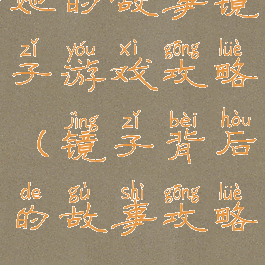 她的故事镜
zǐ yóu xì gōng lüè
子游戏攻略
jìng zǐ bèi hòu
(镜子背后
de gù shì gōng lüè
的故事攻略